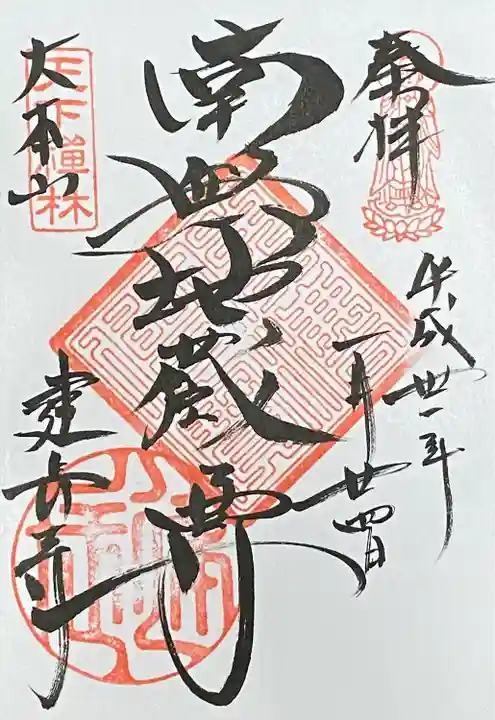 奉拝
平成卅一年
一月廿四日
南無地蔵尊
大本山
天下禅林
建長寺